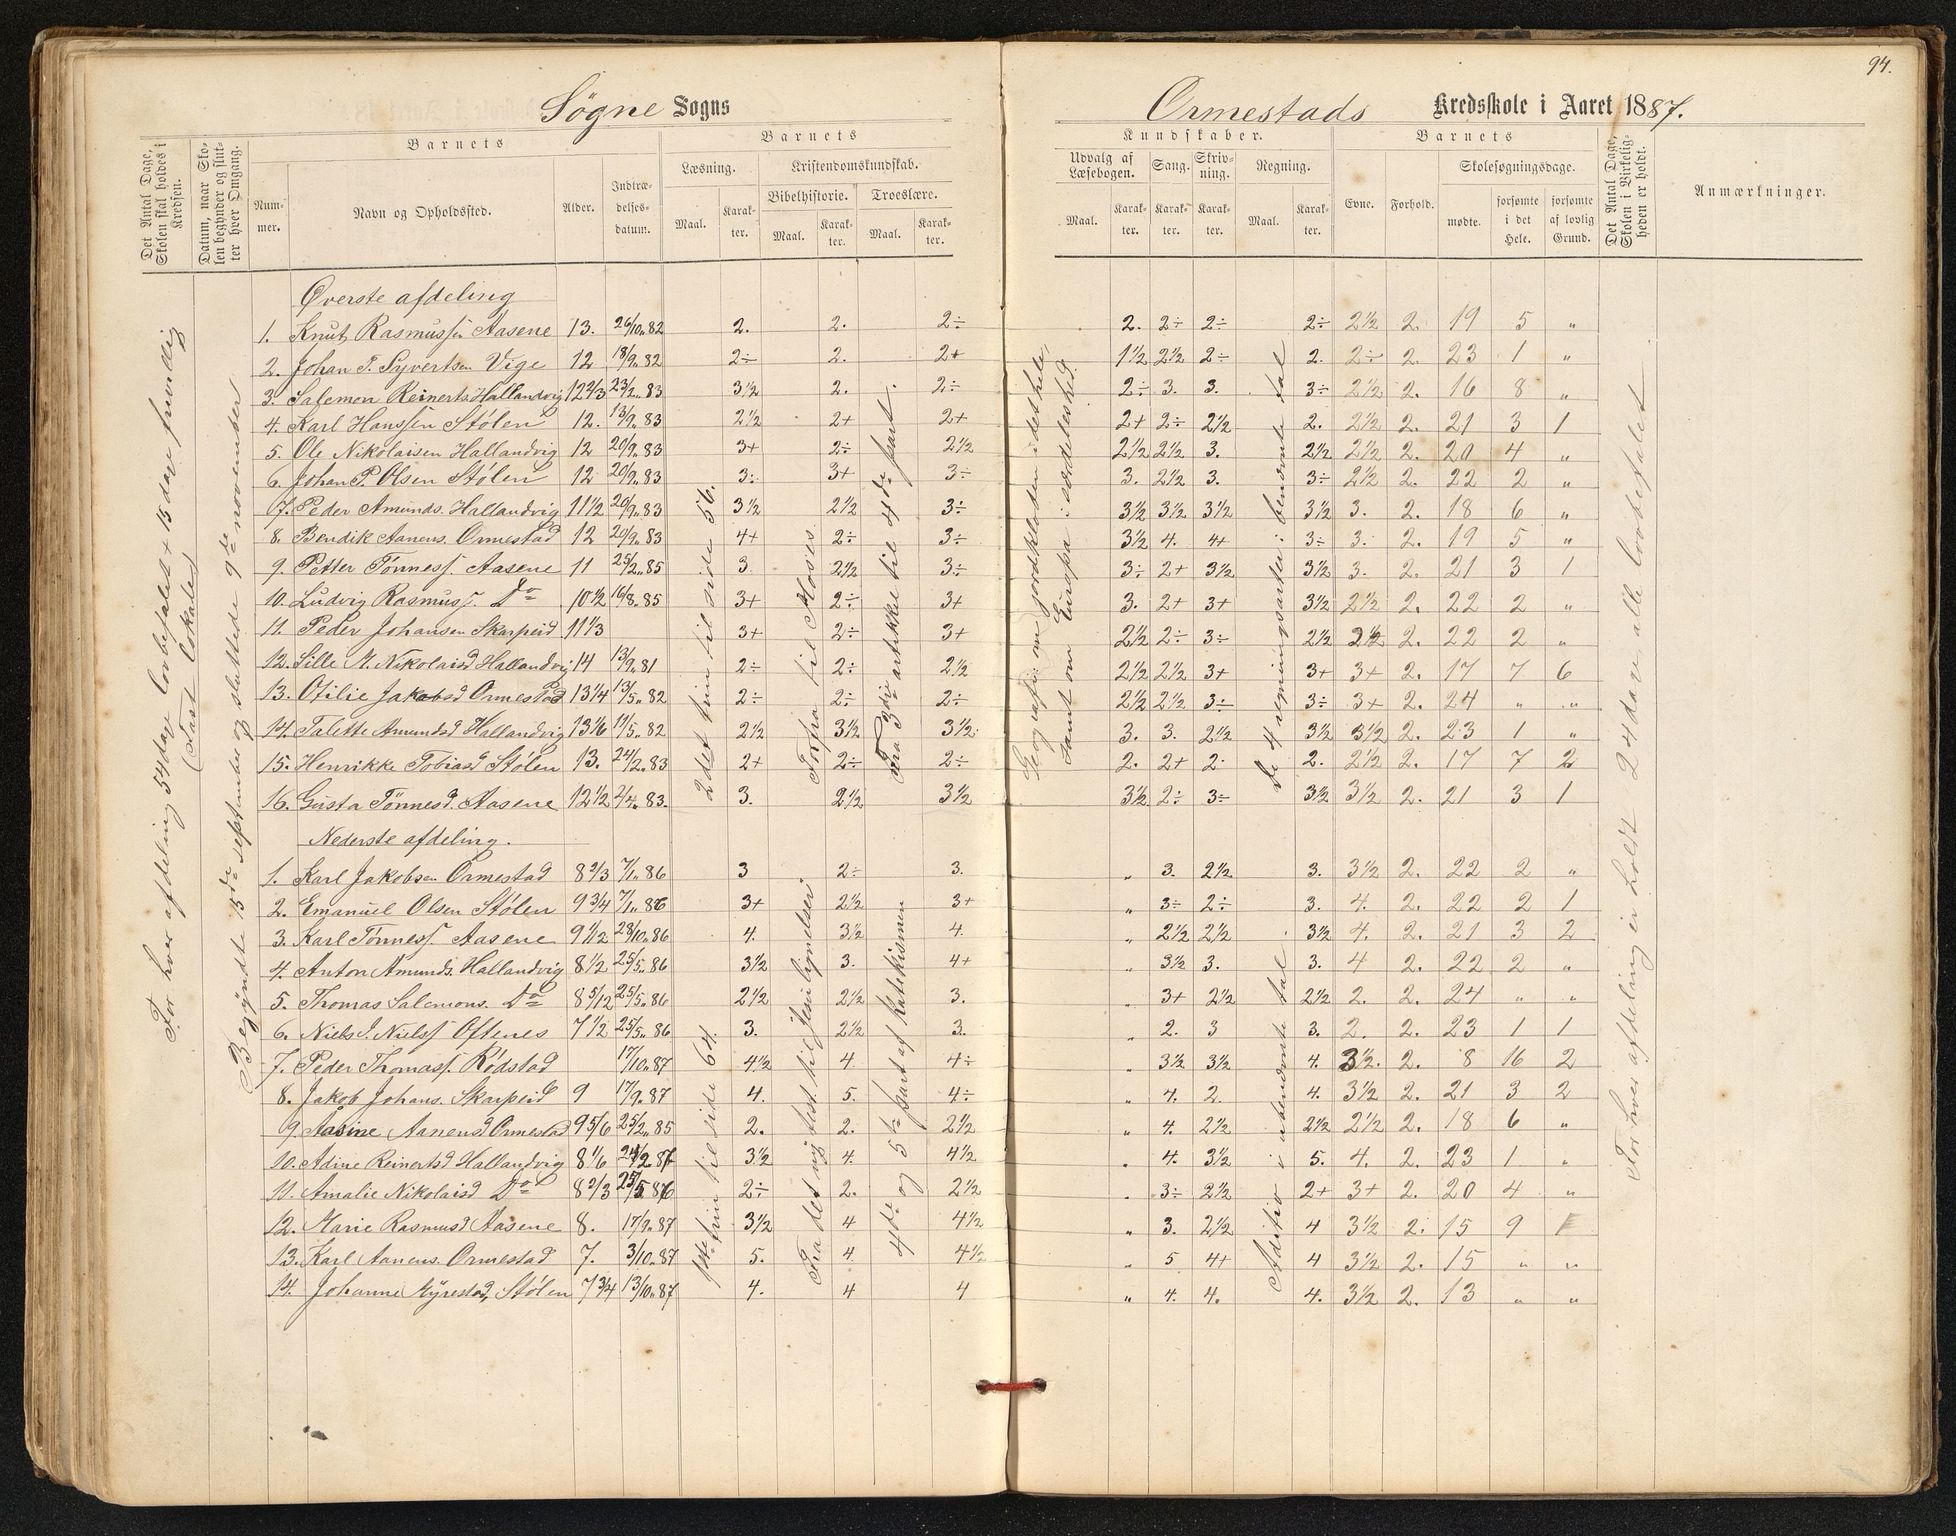 94.
Søgne Sogns
Ormestads Kredsskole i Aaret 1887.
Det Antal Dage, Skolen skal holdes i Kredsen.
Datum, naar Skolen begynder og slutter hver Omgang.
Barnets
Nummer.
Navn og Opholdssted.
Alder.
Indtrædelsesdatum.
Barnets
Læsning.
Maal.
Karakter.
Kristendomskundskab.
Bibelhistorie.
Maal.
Karakter.
Troeslære.
Maal.
Karakter.
Kundskaber.
Udvalg af Læsebogen.
Maal.
Karakter.
Sang.
Karakter.
Skrivning.
Karakter.
Regning.
Maal.
Karakter.
Barnets
Evne.
Forhold.
Skolesøgningsdage.
mødte.
forsømte i det Hele.
forsømte af lovlig Grund.
Det Antal Dage, Skolen i Virkeligheden er holdt.
Anmærkninger.
For hver afdeling 54 dage lovbefalet + 15 dage frivillig
(Fast lokale)
Begyndte 15de september og sluttede 9de november
2det trin til side 56.
Forfra til Moses
Fra 3die artikkel til 4de part.
Geografi: om jordkloden i det hele,
samt om Europa i særdeleshed.
De 4 regningsarter i benævnte tal
For hver afdeling er holdt 24 dage, alle lovbefalet
Øverste afdeling
1. Knut Rasmussn Aasene 13. 26/10.82 2. 2. 2÷ 2. 2÷ 2÷ 2÷ 2½ 2. 19 5 "
2. Johan P. Syvertsen Vige 12 18/9.82 2÷ 2. 2+ 1½ 2½ 2÷ 2. 2÷ 2. 23 1 "
3. Salemon Reinerts. Hallandvig 12 2/3 23/2.83 3½ 2. 2÷ 2÷ 3. 3. 3÷ 2½ 2. 16 8 "
4. Karl Hanssen Stølen 12. 13/9.83 2½ 2+ 2+ 2+ 2÷ 2½ 2. 2½ 2. 21 3 1
5. Ole Nikolaisen Hallandvig 12 20/9.83 3+ 2÷ 2½ 2½ 2½ 3. 2½ 2½ 2. 20 4 "
6. Johan P. Olsen Stølen 12 20/9.83 3÷ 3+ 3÷ 3. 2½ 3. 3÷ 2½ 2. 22 2 "
7. Peder Amunds. Hallandvig 11½ 20/9.83 3½ 2½ 3÷ 3½ 3½ 3½ 3½ 3. 2. 18 6 "
8. Bendik Aanens. Ormestad 12 20/9.83 4+ 2÷ 3÷ 3½ 4. 4+ 3÷ 3. 2. 19 5 "
9. Petter Tønness. Aasene 11 25/2.85 3. 2½ 3÷ 3÷ 2+ 3½ 3½ 3. 2. 21 3 1
10. Ludvig Rasmuss. Do 10½ 16/8.85 3+ 2÷ 3+ 3. 2+ 3+ 3½ 2½ 2. 22 2 "
11. Peder Johansen Skarpeid 11 1/3 3+ 2÷ 3+ 2½ 2÷ 3÷ 2½ 2½ 2. 22 2 "
12. Sille M. Nikolaisd Hallandvig 14 13/9.81 2÷ 2÷ 2½ 2½ 2½ 3+ 3+ 3+ 2. 17 7 6
13. Otilie Jakobsd Ormestad 13 1/4 13/5.82 2÷ 2÷ 2÷ 2½ 2½ 3÷ 3÷ 3+ 2. 24 " "
14. Talette Amundsd Hallandvig 13 1/6 11/5.82 2½ 3½ 3½ 3. 3. 2½ 3½ 3½ 2. 23 1 "
15. Henrikke Tobiasd Stølen 13. 24/2.83 2+ 2÷ 2÷ 2. 2+ 2. 2. 2½ 2. 17 7 2
16. Gusta Tønnesd. Aasene 12½ 2/4.83 3. 2½ 3½ 3½ 2÷ 3÷ 3½ 3½ 2. 21 3 1
Nederste afdeling.
1ste trin til side 64.
Fra det ny test. til Jesu lignelser
4de og 5te part af katekismen
Aditio i ubenævnte tal
1. Karl Jakobsen Ormestad 8 2/3 7/1.86 3 2÷ 3. " 3. 2½ 3. 3½ 2. 22 2 "
2. Emanuel Olsen Stølen 9 3/4 7/1.86 3+ 2½ 3+ " 3÷ 2÷ 3. 4. 2. 22 2 1
3. Karl Tønness. Aasene 9 1/12 28/10.86 4. 3½ 4. " 2½ 2½ 3½ 4. 2. 21 3 2
4. Anton Amunds. Hallandvig 8½ 25/5.86 3½ 3. 4+ " 3½ 3. 3. 4 2. 22 2 "
5. Thomas Salemons. Do 8 5/12 25/5.86 2½ 2½ 3. " 3+ 2½ 2½ 2. 2. 24 " "
6. Niels J. Nielss Oftenes 7½ 25/5.86 3. 2½ 3. " 2. 3 3. 2. 2. 23 1 1
7. Peder Thomass. Rødstad 17/10.87 4½ 4. 4÷ " 3½ 3½ 4. 3½. 2. 8 16 2
8. Jakob Johans. Skarpeid 9 17/9.87 4. 5. 4÷ " 4. 2. 4. 3½ 2. 21 3 2
9. Aasine Aanensd Ormestad 9 5/6 25/2.85 2. 2. 2½ " 4. 2½ 2½ 2½ 2. 18 6 "
10. Adine Reinertsd Hallandvig 8 1/6 24/2.87 3½ 4. 4½ " 4. 3½ 5. 4. 2. 23 1 "
11. Amalie Nikolaisd Do 8 2/3 25/5.86 2÷ 2. 2½ " 3÷ 2½ 2+ 3+ 2. 20 4 "
12. Marie Rasmusd Aasene 8. 17/9.87 3½ 4 4½ " 3. 2½ 4 3½ 2. 15 9
13. Karl Aanens. Ormestad 7. 3/10.87 5. 4. 4½ " 5 4+ 4 3½ 2. 15 " "
14. Johanne Myrestad, Stølen 7 3/4 13/10.87 4. 4 4 " 4. 4. 4. 3½ 2. 13 " "